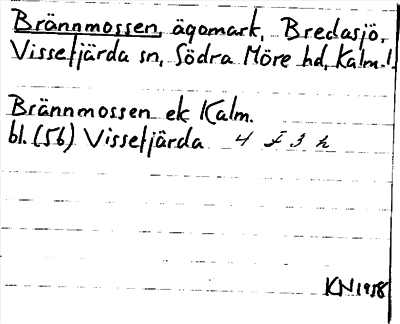 Brännmossen, ägomark, Bredasjö,
Vissefjärda sn, Södra Möre hd, Kalm.l.
Brännmossen ek Kalm.
bl. (56) Vissefjärda 4 I 3 h
KN 1958